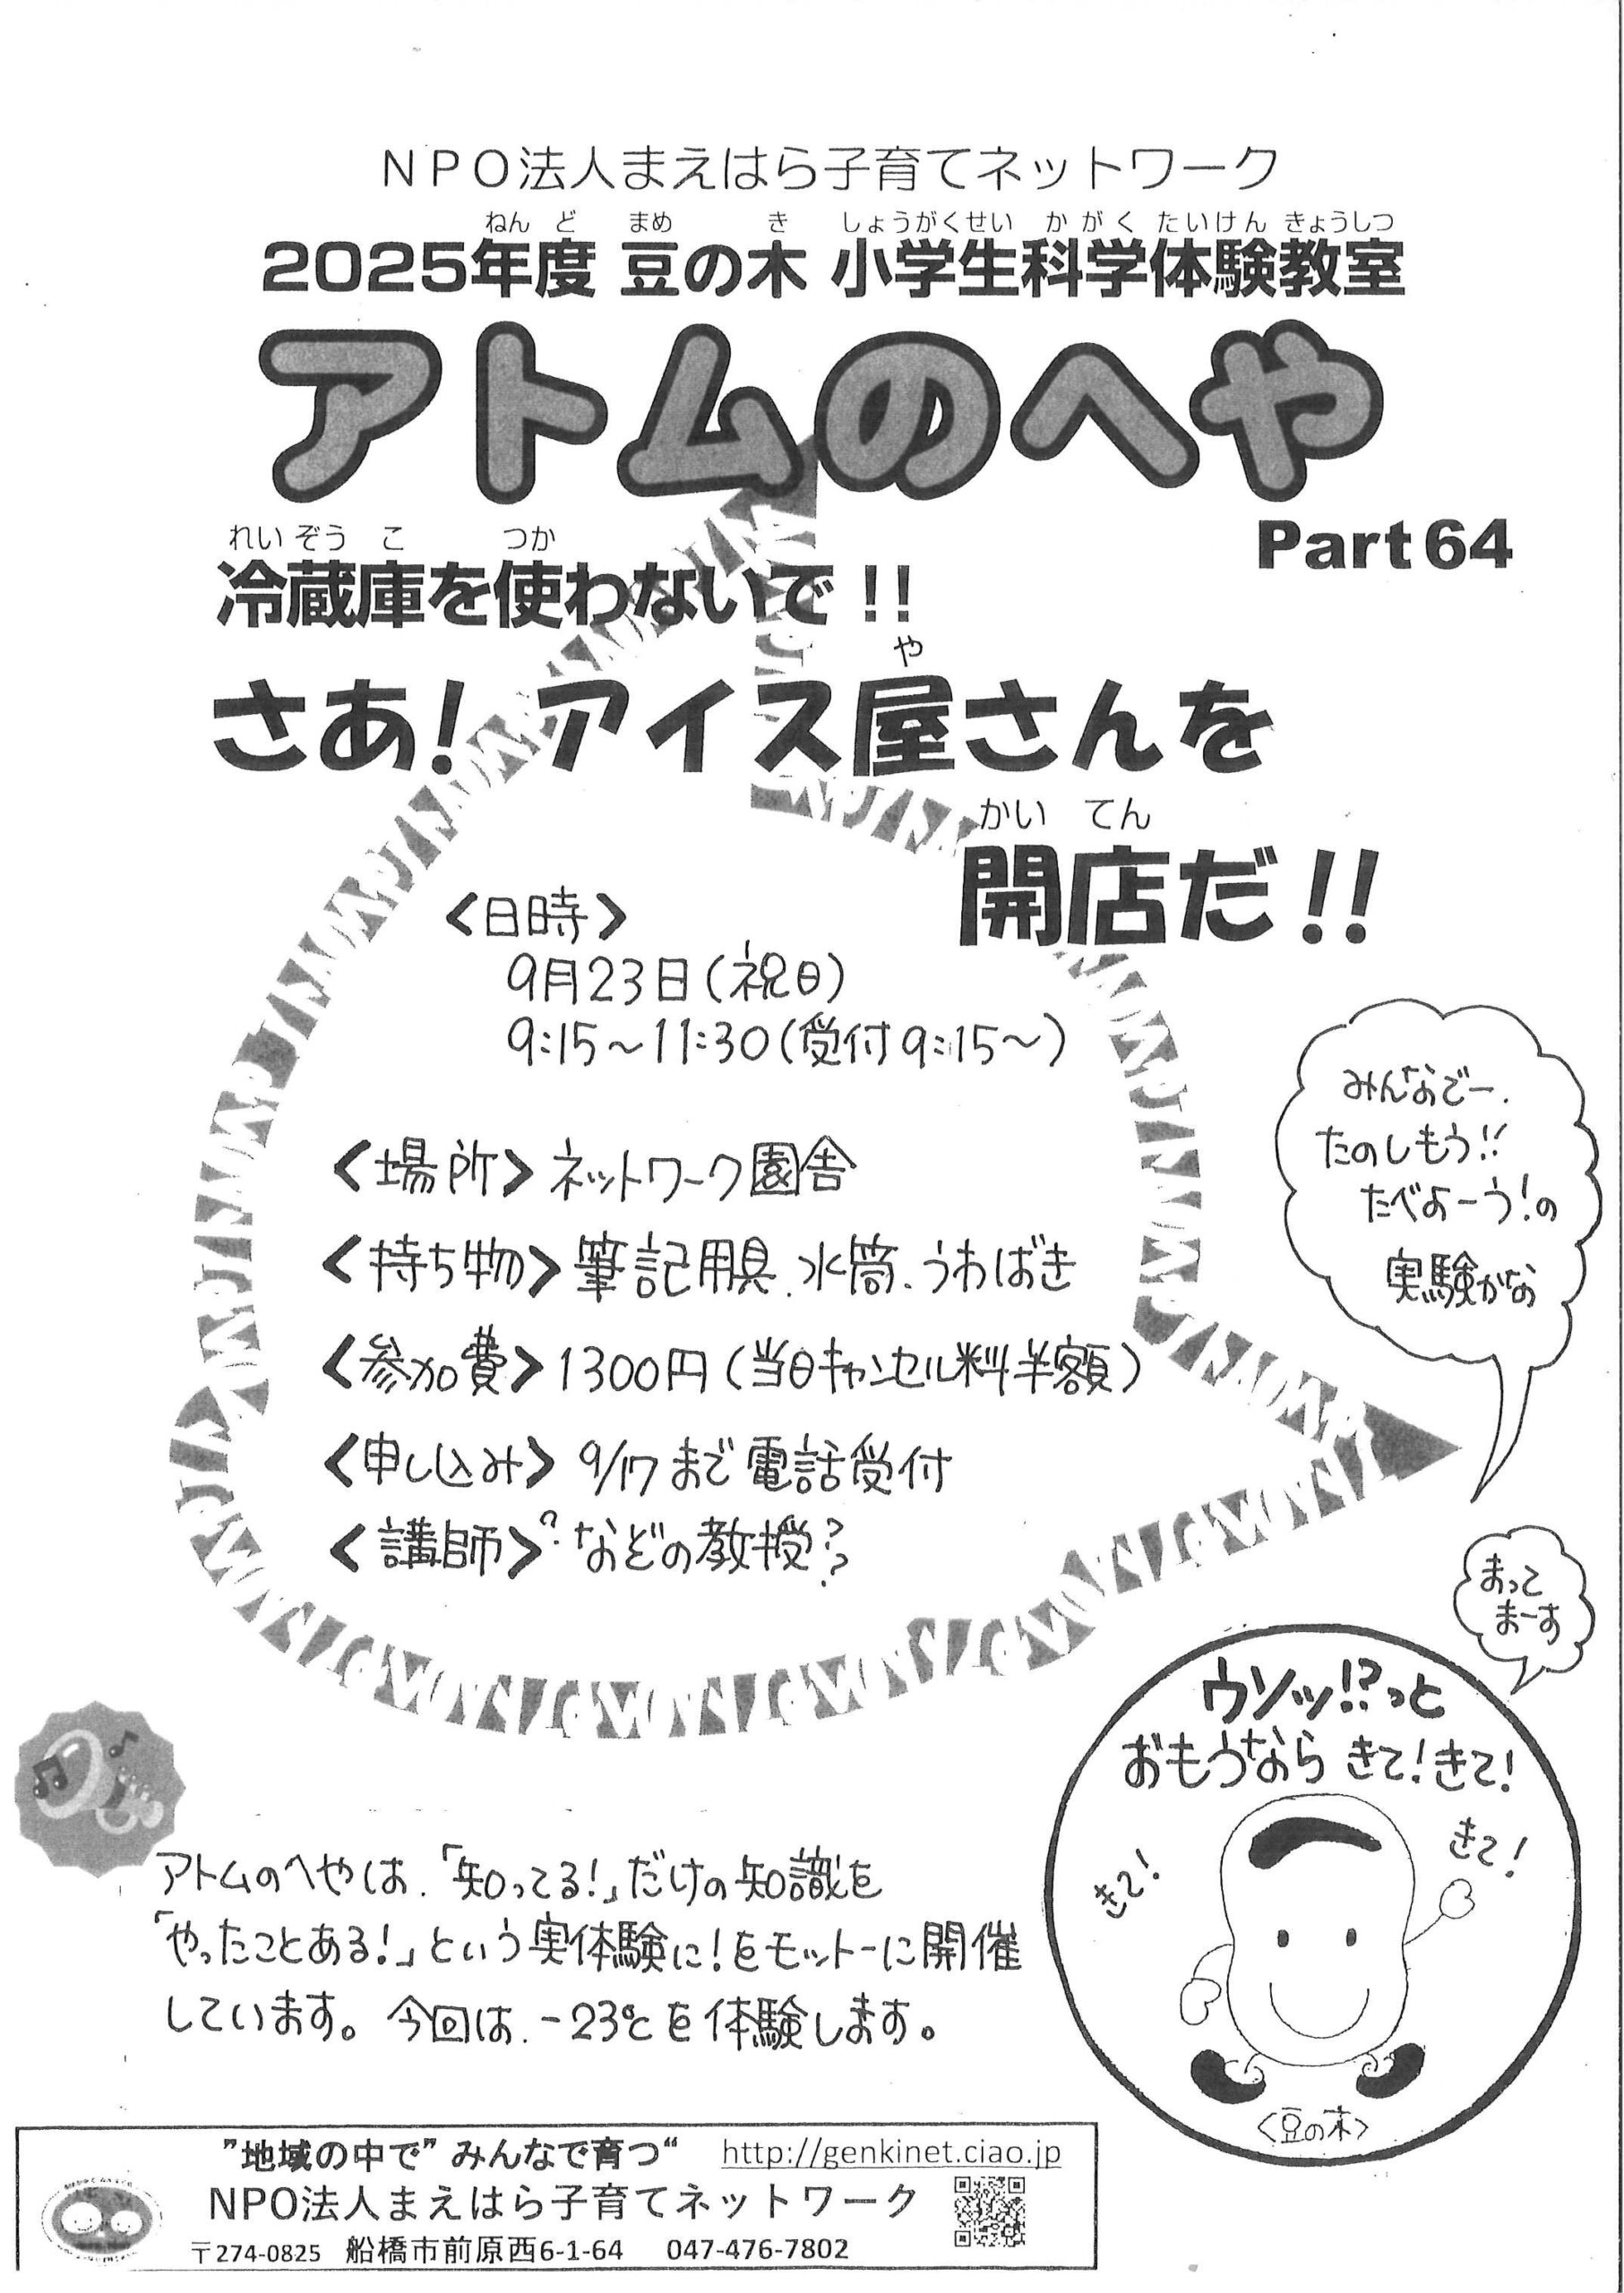 NPO法人まえはら子育てネットワーク
ねんど まめ き しょうがくせい かがく たいけん きょうしつ
2025年度 豆の木 小学生科学体験教室
アトムのへや
Part64
れいぞうこ つか
冷蔵庫を使わないで!!
や
さあ! アイス屋さんを
かいてん
開店だ!!
<日時>
9月23日(祝日)
9:15~11:30(受付9:15~)
<場所>ネットワーク園舎
<持ち物>筆記用具、水筒、うわばき
<参加費>1300円(当日キャンセル料半額)
<申し込み>9/17まで電話受付
<講師>?などの教授?
みんなでー、
たのしもう!!
たべよーう!の
実験かな
まって
まーす
ウソッ!?っと
おもうなら きて!きて!
きて!
きて!
<豆の木>
アトムのへやは、「知ってる!」だけの知識を
「やったことある!」という実体験に!をモットーに開催
しています。今回は、-23℃を体験します。
”地域の中で”みんなで育つ“ http://genkinet.ciao.jp
NPO法人まえはら子育てネットワーク
〒274-0825 船橋市前原西6-1-64 047-476-7802